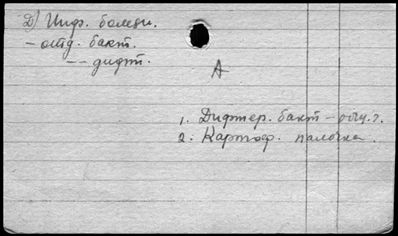 Д) Инф. болезн.
- отд. бакт.
-- дифт.
А
1. Дифтер. бакт -
2. Картоф. палочка.